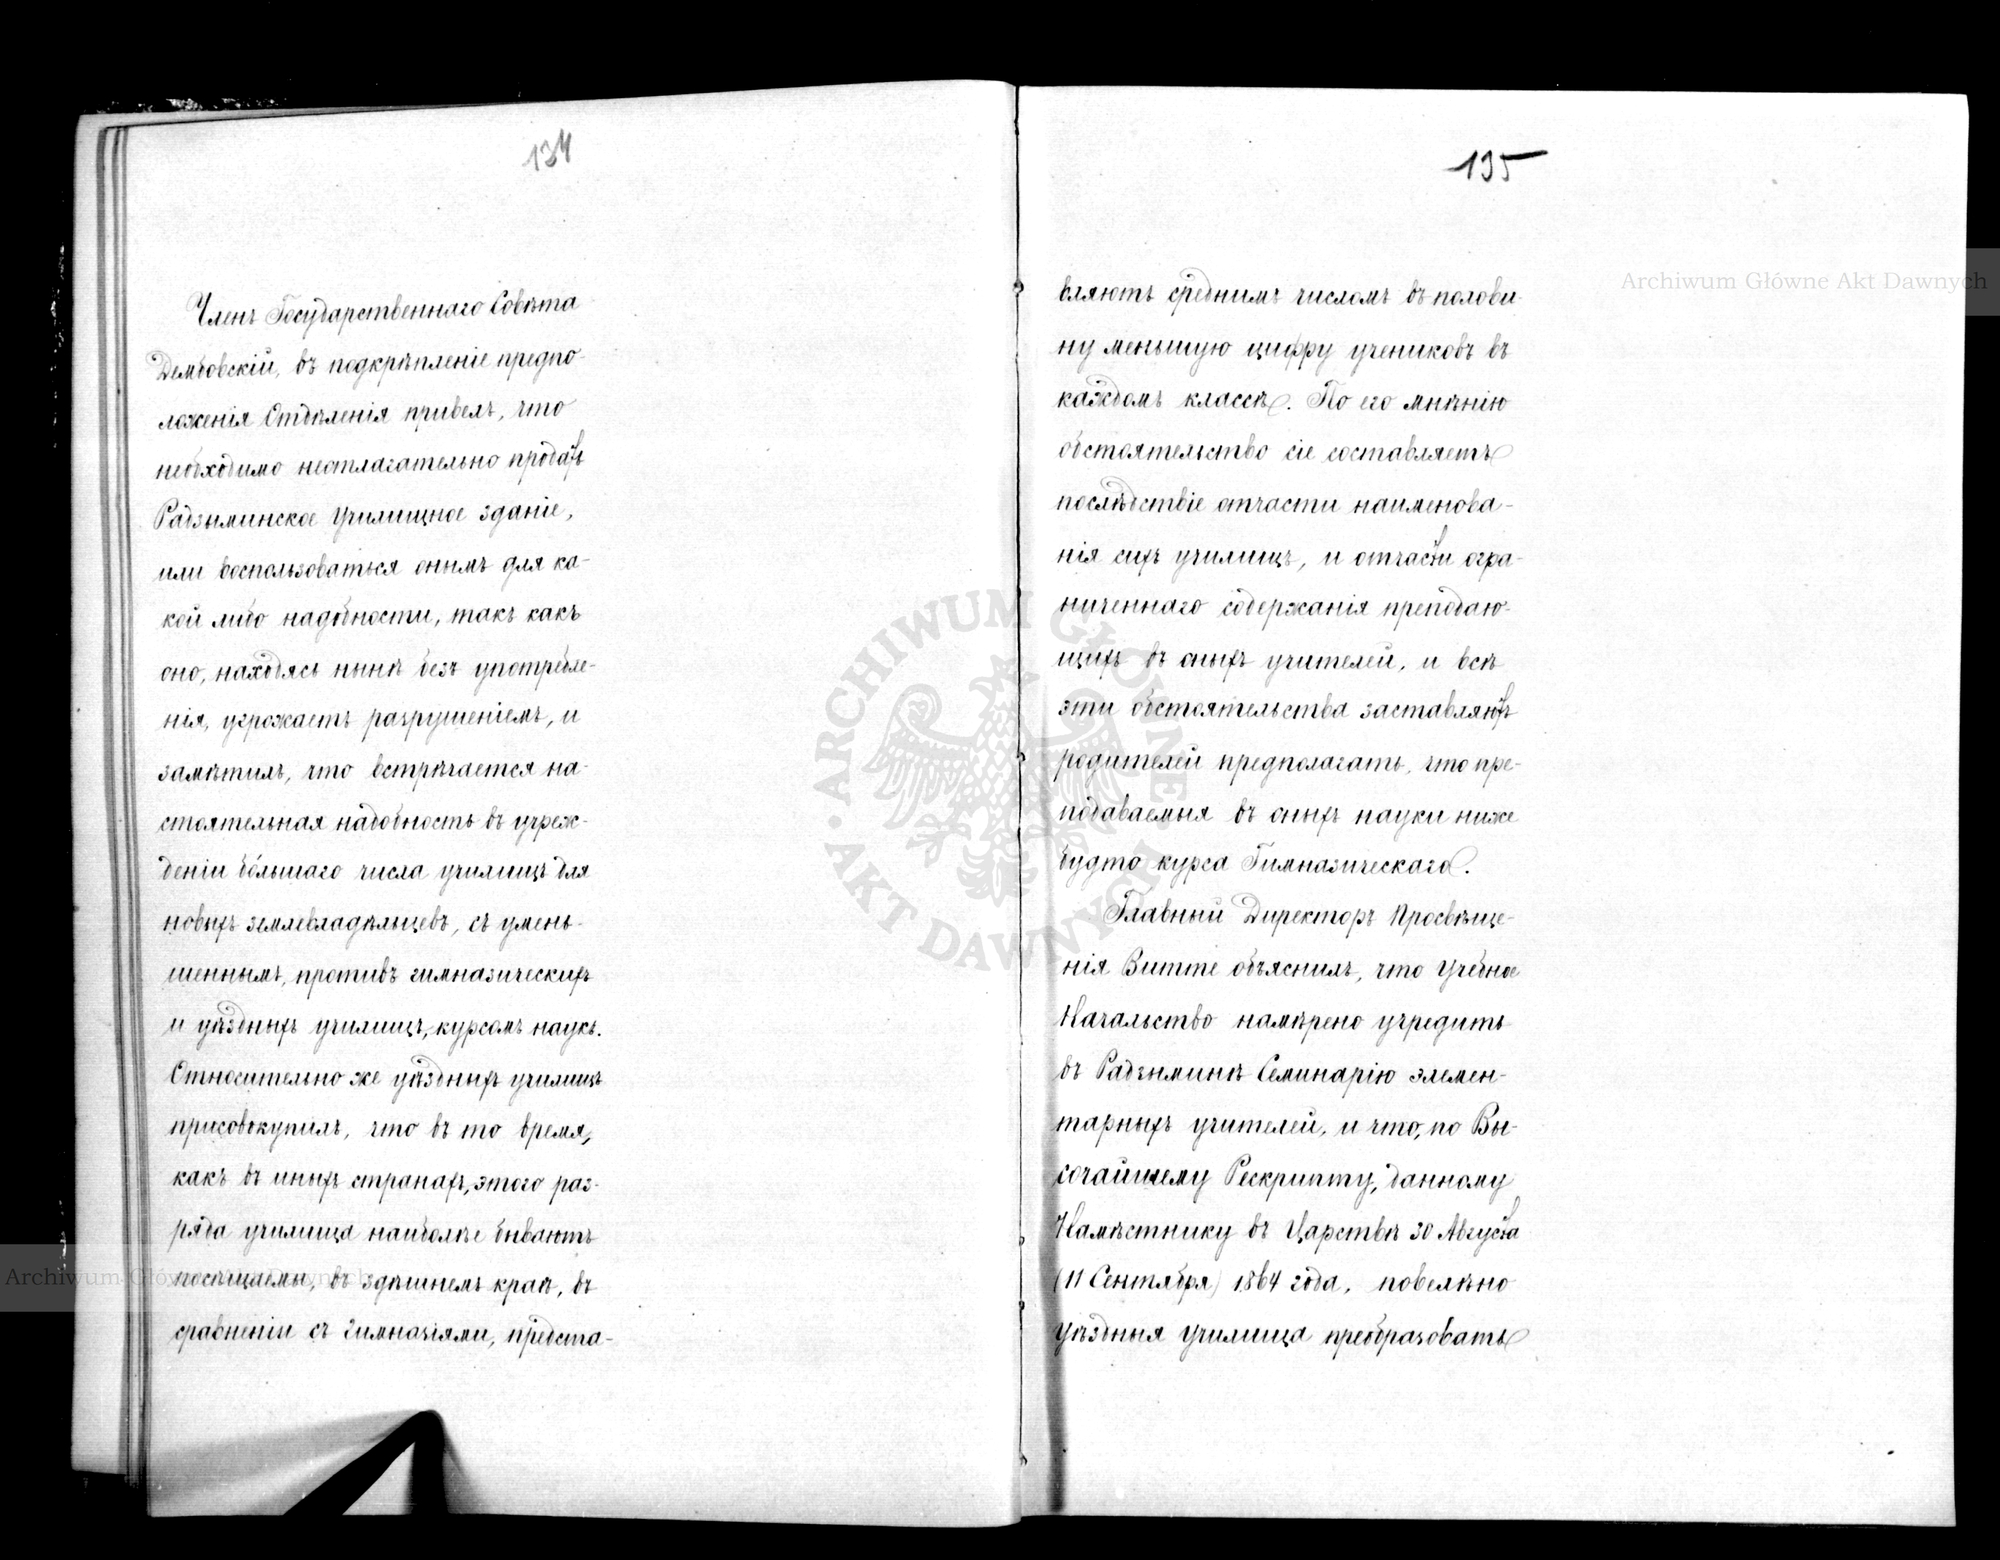 134
Членъ Государственнаго Совѣта
Дембовскій, въ подкрѣпленіе предпо-
ложенія Отдѣленія привелъ, что
необходимо неотлагательно продать
Радзыминское училищное зданіе,
или воспользоваться онымъ для ка-
кой либо надобности, такъ какъ
оно, находясь нынѣ безъ употребле-
нія, угрожаетъ разрушеніемъ, и
замѣтилъ, что встрѣчается на-
стоятельная надобность въ учреж-
деніи бо́льшаго числа училищъ для
новыхъ землевладѣльцевъ, съ умень-
шеннымъ, противъ гимназическихъ
и уѣздныхъ училищъ, курсомъ наукъ.
Относительно же уѣздныхъ училищъ
присовокупилъ, что въ то время,
какъ въ иныхъ странахъ, этого раз-
ряда училища наиболѣе бываютъ
посѣщаемы, въ здѣшнемъ краѣ, въ
сравненіи съ гимназіями, предста-
135
вляютъ среднимъ числомъ въ полови-
ну меньшую цифру учениковъ въ
каждомъ классѣ. По его мнѣнію
обстоятельство сіе составляетъ
послѣдствіе отчасти наименова-
нія сихъ училищъ, и отчасти огра-
ниченнаго содержанія преподаю-
щихъ въ оныхъ учителей, и всѣ
эти обстоятельства заставляютъ
родителей предполагать, что пре-
подаваемыя въ оныхъ науки ниже
будто курса Гимназическаго.
Главный Директоръ Просвѣще-
нія Витте объяснилъ, что Учебное
Начальство намѣрено учредить
въ Радзыминѣ Семинарію элемен-
тарныхъ учителей, и что, по Вы-
сочайшему Рескрипту, данному
Намѣстнику въ Царствѣ 30 Августа
(11 Сентября) 1864 года, повелѣно
уѣздныя училища преобразовать
Archiwum Główne Akt Dawnych
Archiwum Główne Akt Dawnych
ARCHIWUM GŁÓWNE · AKT DAWNYCH ·